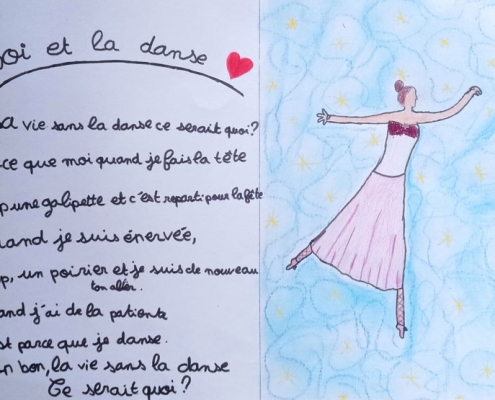 oi et la danse
a vie sans la danse ce serait quoi?
ce que moi quand je fais la tête
p une galipette et c'est reparti pour la fête
uand je suis énervée,
p, un poirier et je suis de nouveau
and j'ai de la patiente
st parce que je danse.
n bon, la vie sans la danse
Ce serait quoi?